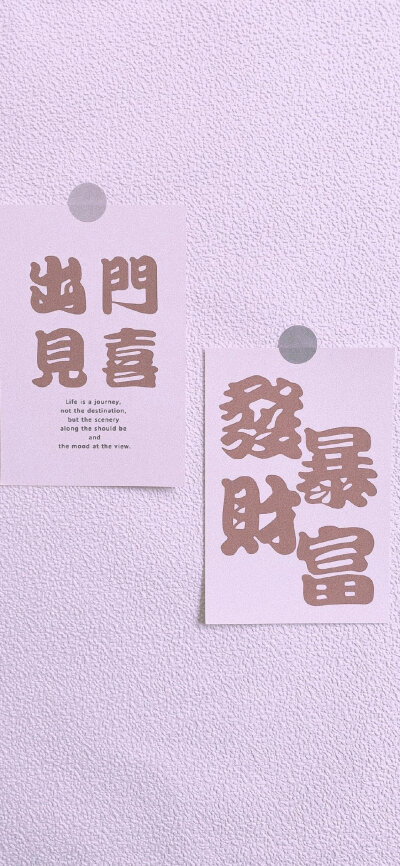 出門
見喜
Life is a journey,
not the destination,
but the scenery
along the should be
and
the mood at the view.
發暴
財富